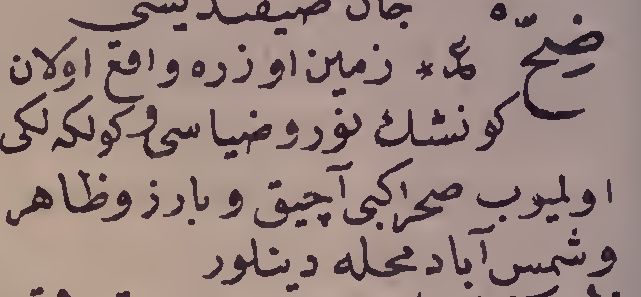 جان صیقندیسی
ضِحّ ع زمین اوزره واقع اولان
كونشك نور و ضیاسی و كولكه لكی
اولمیوب صحرا كبی آچیق و بارز و ظاهر
و شمس آباد محله دینلور